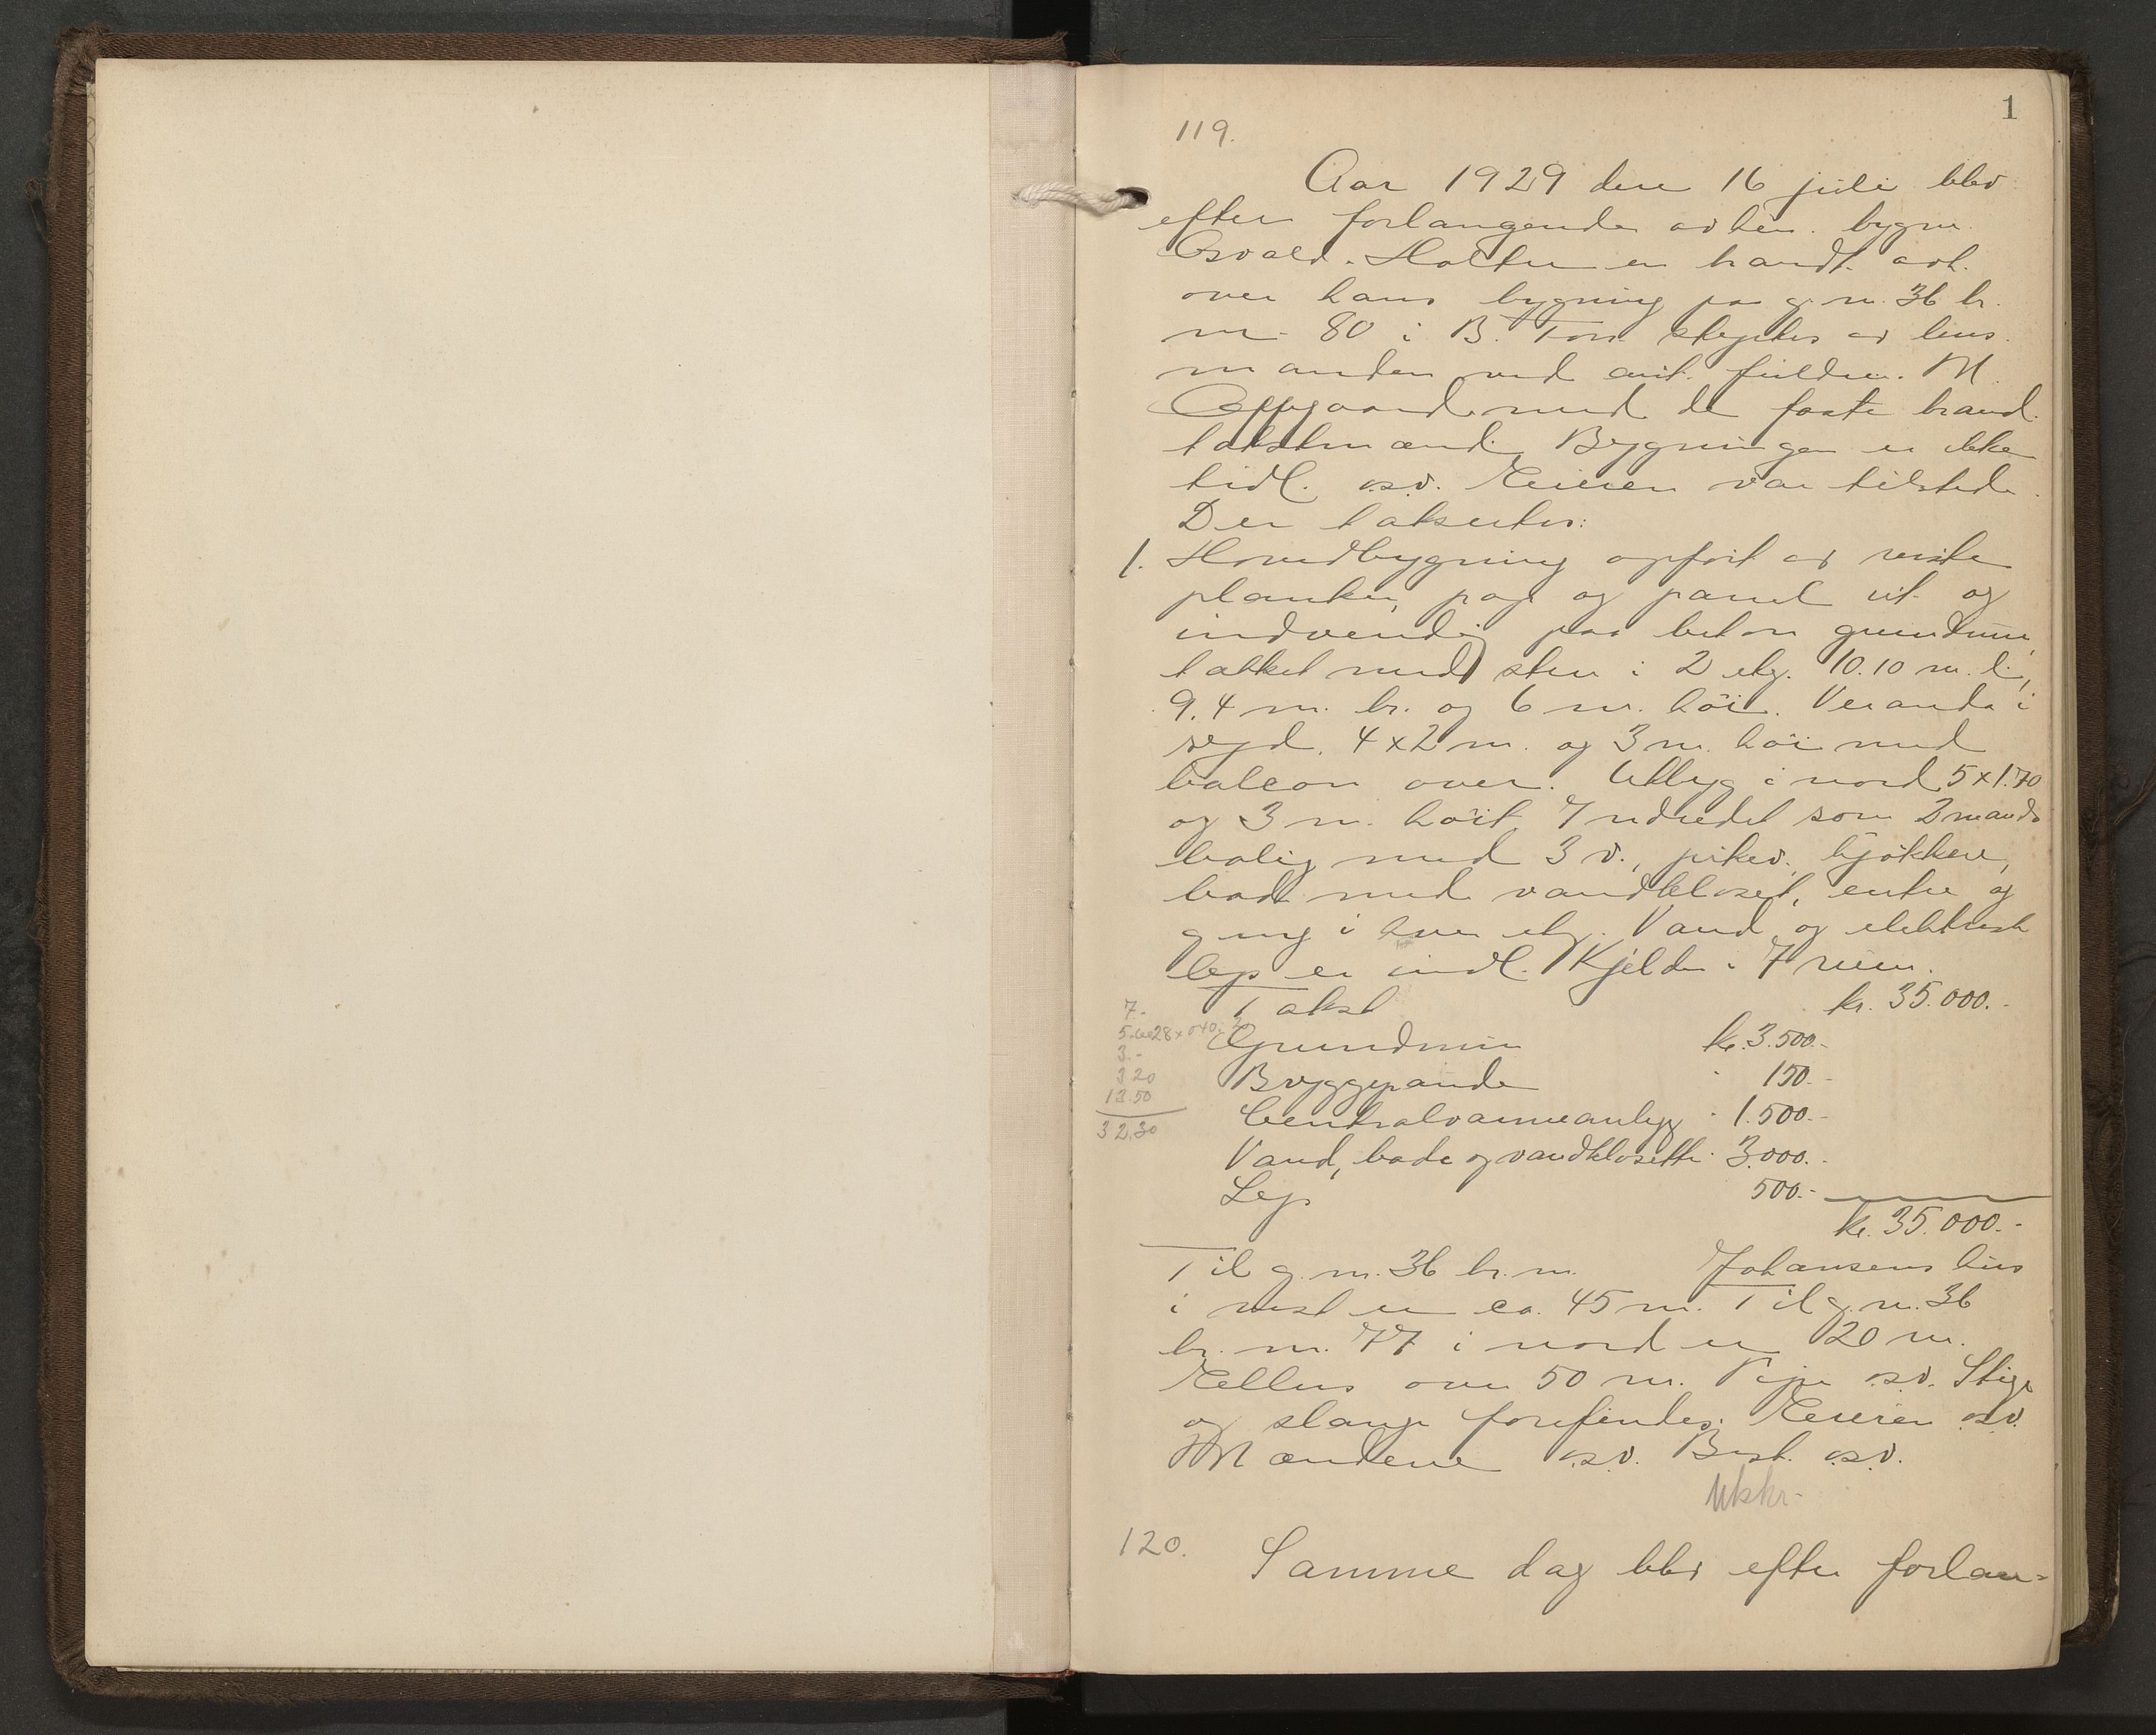 1
119.
Aar 1929 den 16 juli blev
efter forlangende av bygm.
Osvald Holter en brandt.
over hans bygning paa g. nr. 36 br.
nr. 80 i B. Forr. styrtes av lens-
manden ved aut. fuldm. M.
Oppgaard med de faste brand-
takstmænd. Bygningen er ikke
tidl. o.s.v. Eieren var tilstede.
Der taksertes:
1. Hovedbygning opført av reiste
planker, pap og panel ut- og
indvendig paa beton grundmur,
tækket med sten i 2 etg. 10.10 m. l.,
9.4 m. br. og 6 m. höi. Veranda i
syd. 4 x 2 m. og 3 m. höi med
balcon over. Utbyg i nord 5 x 1.70
og 3 m. höit. Indredet som 2 mands
bolig med 3 v., pikev., kjökken,
bad med vandkloset, entre og
gang i hver etg. Vand og elektrisk
lys er indl. Kjelder i 7 rum.
Takst kr. 35.000.-
7.-
Grundmur kr. 3.500.-
3.-
Bryggepande " 150.-
3 20
13.50
Centralvarmeanlegg " 1.500.-
32.30
Vand, bade og vandklosetter " 3.000.-
Lys 500.-
kr. 35.000.-
Til g. nr. 36 br. nr. Johansens hus
i vest er ca. 45 m. Til g. nr. 36
br. nr. 77 i nord er 20 m.
Ellers over 50 m. Pipe o.s.v. Stige
og slange forefindes. Eieren o.s.v.
Mændene o.s.v. Best. o.s.v.
Utskr.
120. Samme dag blev efter forlan-